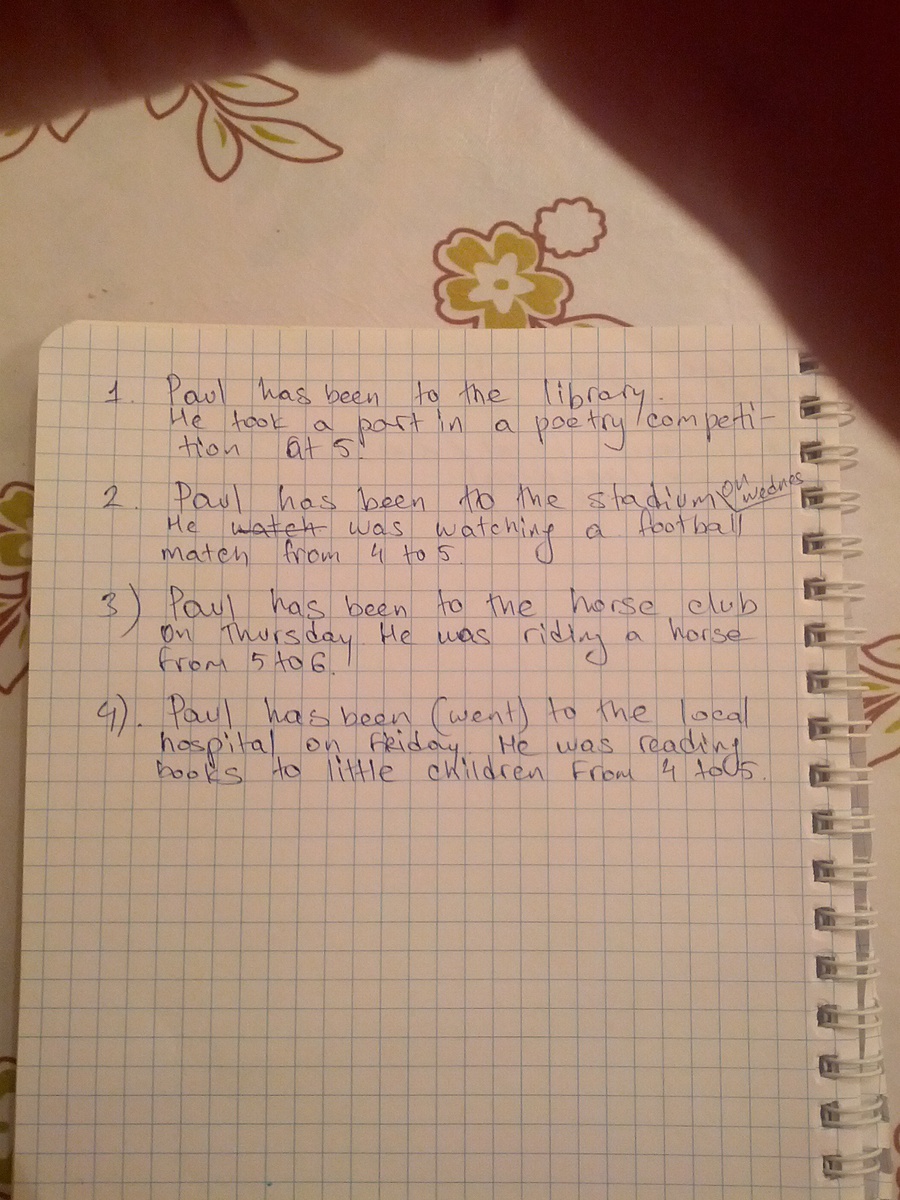 1. Paul has been to the library.
He took a part in a poetry competi-
tion at 5.
2. Paul has been to the stadium on wednes
He watch was watching a football
match from 4 to 5.
3) Paul has been to the horse club
on Thursday. He was riding a horse
from 5 to 6.
4). Paul has been (went) to the local
hospital on Friday. He was reading
books to little children from 4 to 5.